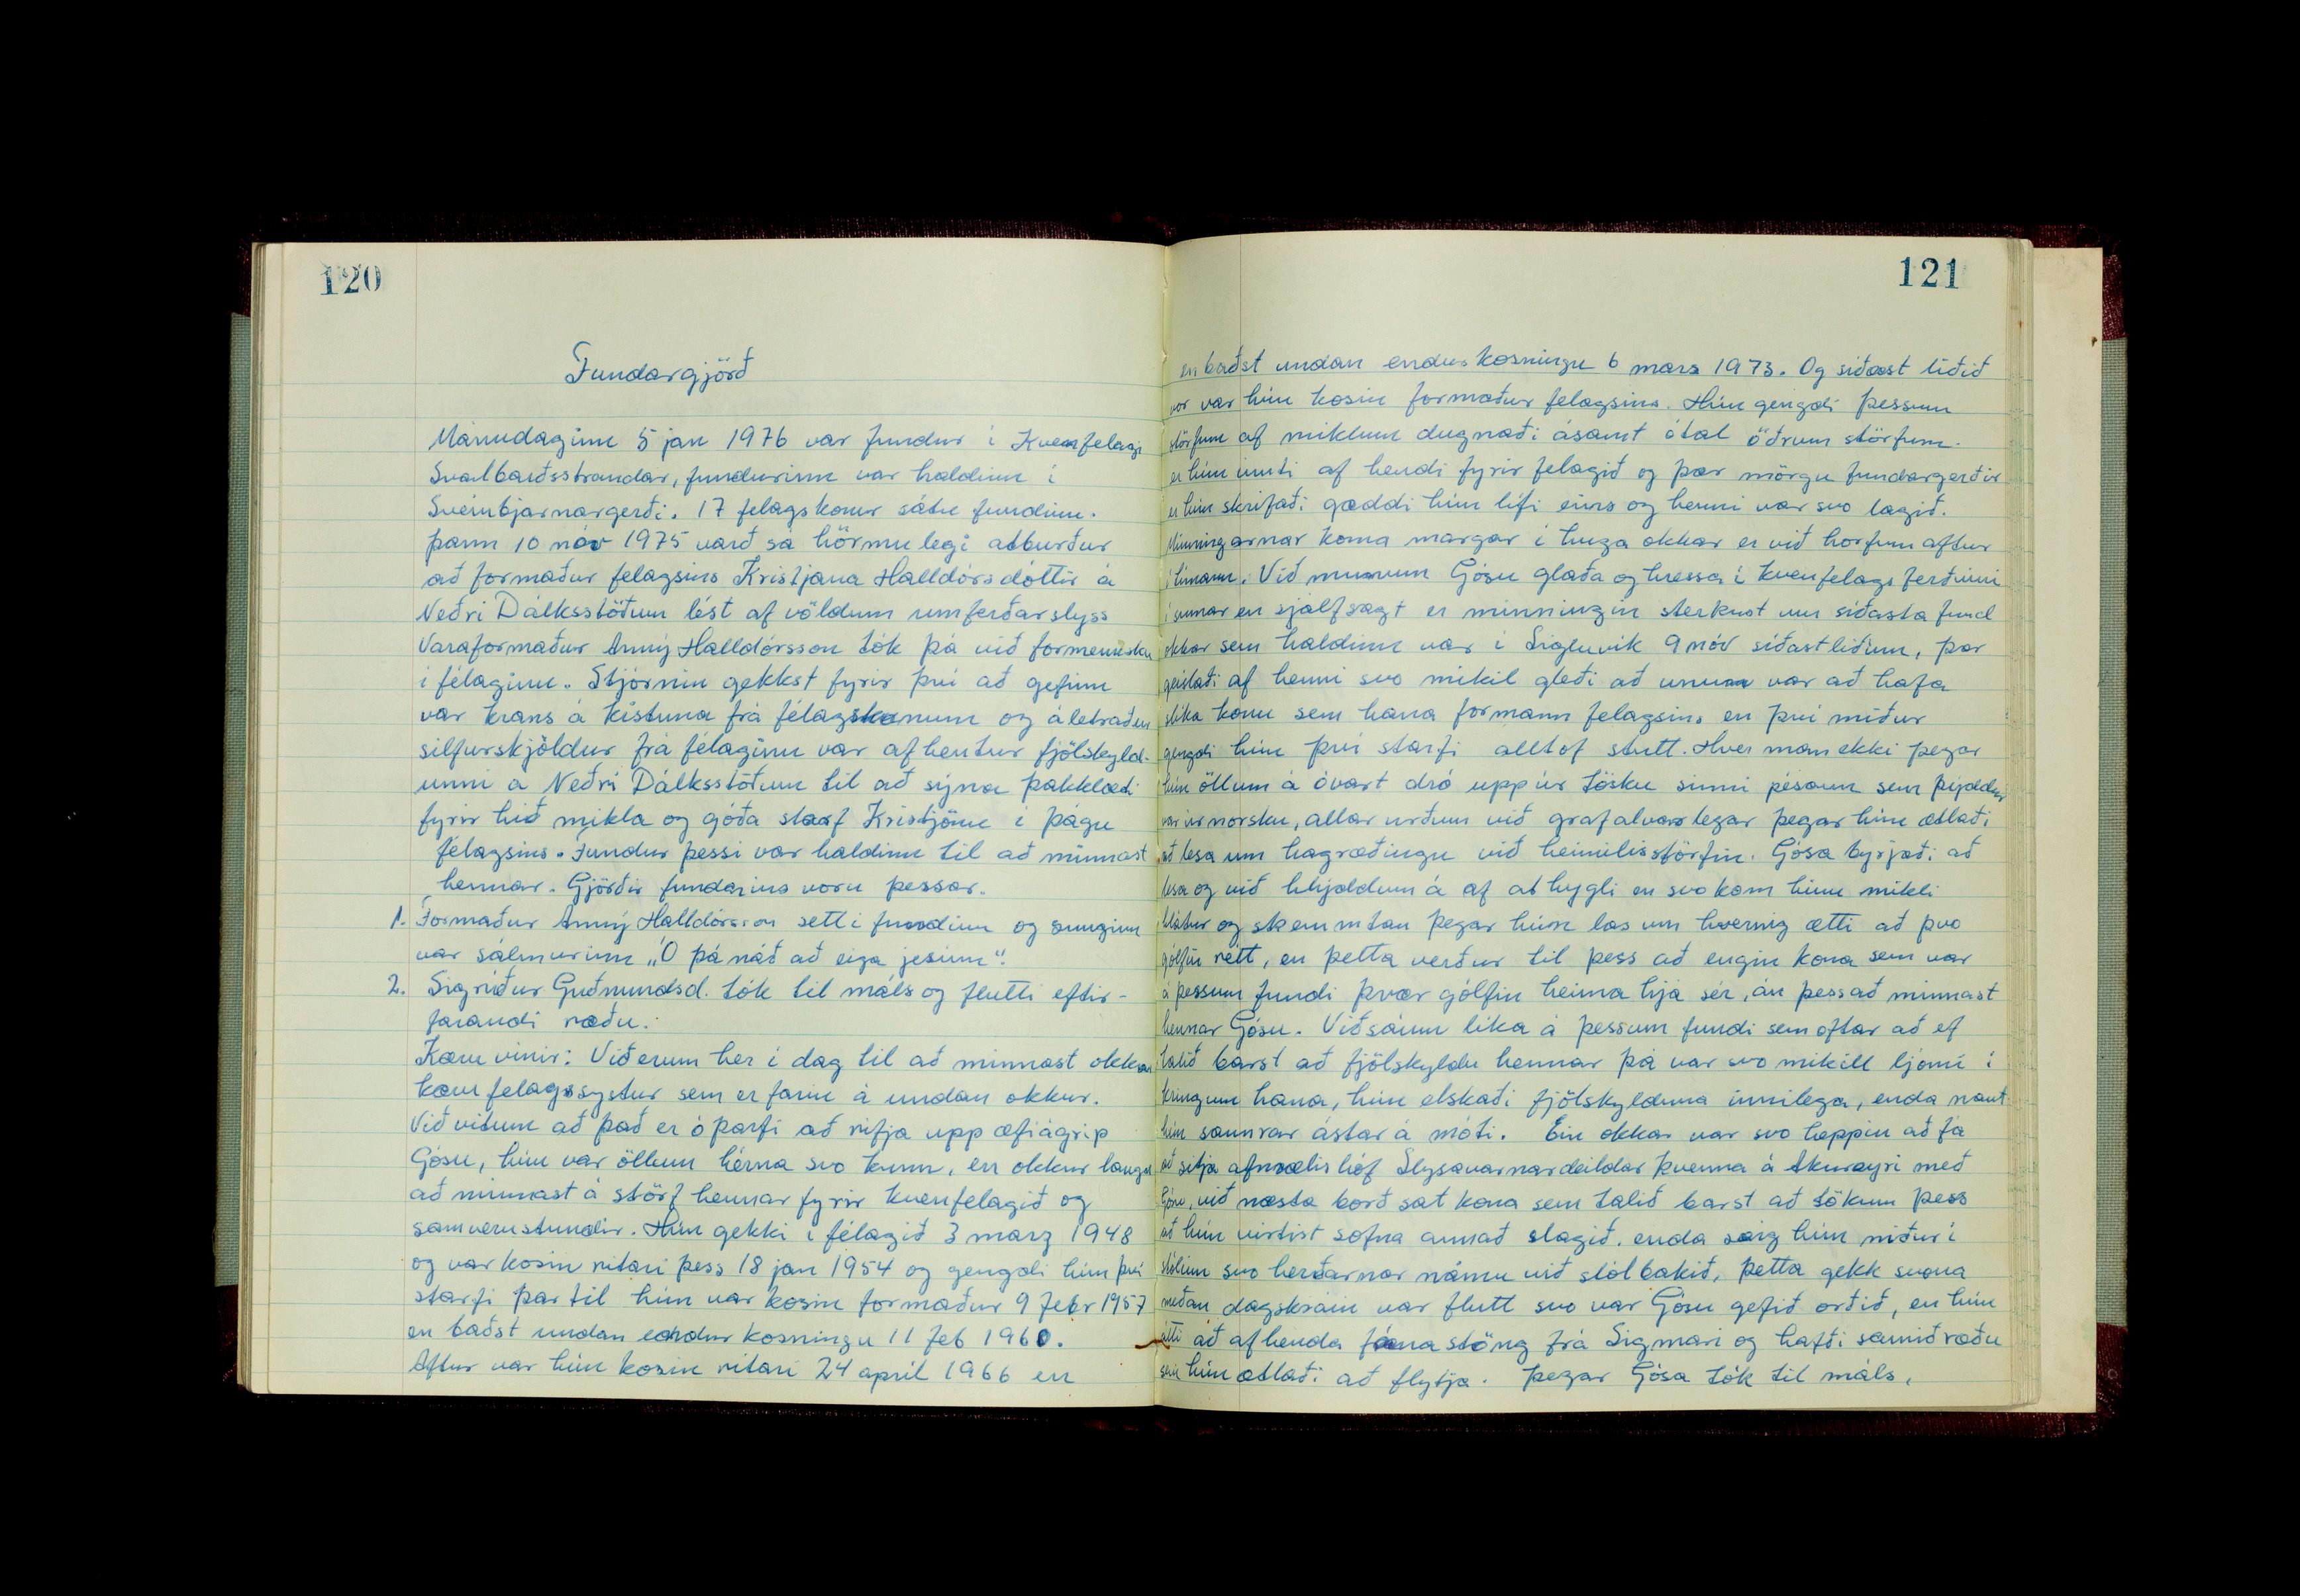 120
Fundargjörð
Mánudaginn 5 jan 1976 var fundur i Kvenfelagi
Svalbarðsstrandar, fundurinn var haldinn i
Sveinbjarnargerði. 17 felagskonur sátu fundinn.
þann 10 nóv 1975 varð sá hörmulegi atburður
að formaður felagsins Kristjana Halldórsdóttir á
Neðri Dálksstöðum lést af völdum umferðarslyss
Varaformaður Anný Halldórsson tók þá við formennsku
i félaginu. Stjórnin gekkst fyrir því að gefinn
var krans á kistuna frá félagskonum og áletraður
silfurskjöldur frá félaginu var afhentur fjölskyld-
unni a Neðri Dálksstöðum til að sýna þakklæti
fyrir hið mikla og góða starf Kristjönu i þágu
félagsins. Fundur þessi var haldinn til að minnast
hennar. Gjörðir fundarins voru þessar.
1. Formaður Anný Halldórsson setti fundinn og sunginn
var sálmurinn „Ó þá náð að eiga jesúm".
2. Sigríður Guðmundsd. tók til máls og flutti eftir-
farandi ræðu.
Kæru vinir: Við erum her i dag til að minnast okkar
kæru felagssystur sem er farin á undan okkur.
Við vitum að það er óþarfi að rifja upp æfiágrip
Gósu, hún var öllum hérna svo kunn, en okkur langar
að minnast á störf hennar fyrir kvenfelagið og
samverustundir. Hún gekk i félagið 3 marz 1948
og var kosin ritari þess 18 jan 1954 og gengdi hún því
starfi þar til hún var kosin formaður 9 febr 1957
en baðst undan endurkosningu 11 feb 1960.
Aftur var hún kosin ritari 24 april 1966 en
121
en baðst undan endurkosningu 6 mars 1973. Og siðast liðið
vor var hún kosin formaður felagsins. Hún gengdi þessum
störfum af miklum dugnaði ásamt ótal öðrum störfum.
er hún innti af hendi fyrir felagið og þær mörgu fundargerðir
er hún skrifaði gæddi hún lífi eins og henni var svo lagið.
Minningarnar koma margar i huga okkar er við horfum aftur
i timann. Við munum Gósu glaða og hressa i kvenfelags ferðinni
i sumar en sjálfsagt er minningin sterkust um siðasta fund
okkar sem haldinn var i Sigluvik 9 nóv síðastliðinn, þar
geislaði af henni svo mikil gleði að unun var að hafa
slika konu sem hana formann felagsins en því miður
gengdi hún því starfi alltof stutt. Hver man ekki þegar
hún öllum á óvart dró uppúr tösku sinni pésann sem þýddur
var úr norsku, allar urðum við grafalvarlegar þegar hún ætlaði
að lesa um hagræðingu við heimilisstörfin. Gósa byrjaði að
lesa og við hlýddum á af athygli en svo kom hinn mikli
hlátur og skemmtan þegar hún las um hvernig ætti að þvo
gólfin rétt, en þetta verður til þess að engin kona sem var
á þessum fundi þvær gólfin heima hjá sér, án þess að minnast
hennar Gósu. Við sáum lika á þessum fundi sem oftar að ef
talið barst að fjölskyldu hennar þá var svo mikill ljómi i
kringum hana, hún elskaði fjölskylduna innilega, enda naut
hún sannrar ástar á móti. Ein okkar var svo heppin að fá
að sitja afmælishóf Slysavarnardeildar kvenna á Akureyri með
Gósu, við næsta borð sat kona sem talið barst að sökum þess
að hún virtist sofna annað slagið. enda seig hún niður i
stólinn svo herðarnar námu við stólbakið, þetta gekk svona
meðan dagskráin var flutt svo var Gósu gefið orðið, en hún
átti að afhenda fánastöng frá Sigmari og hafði samið ræðu
sem hún ætlaði að flytja. Þegar Gósa tók til máls,